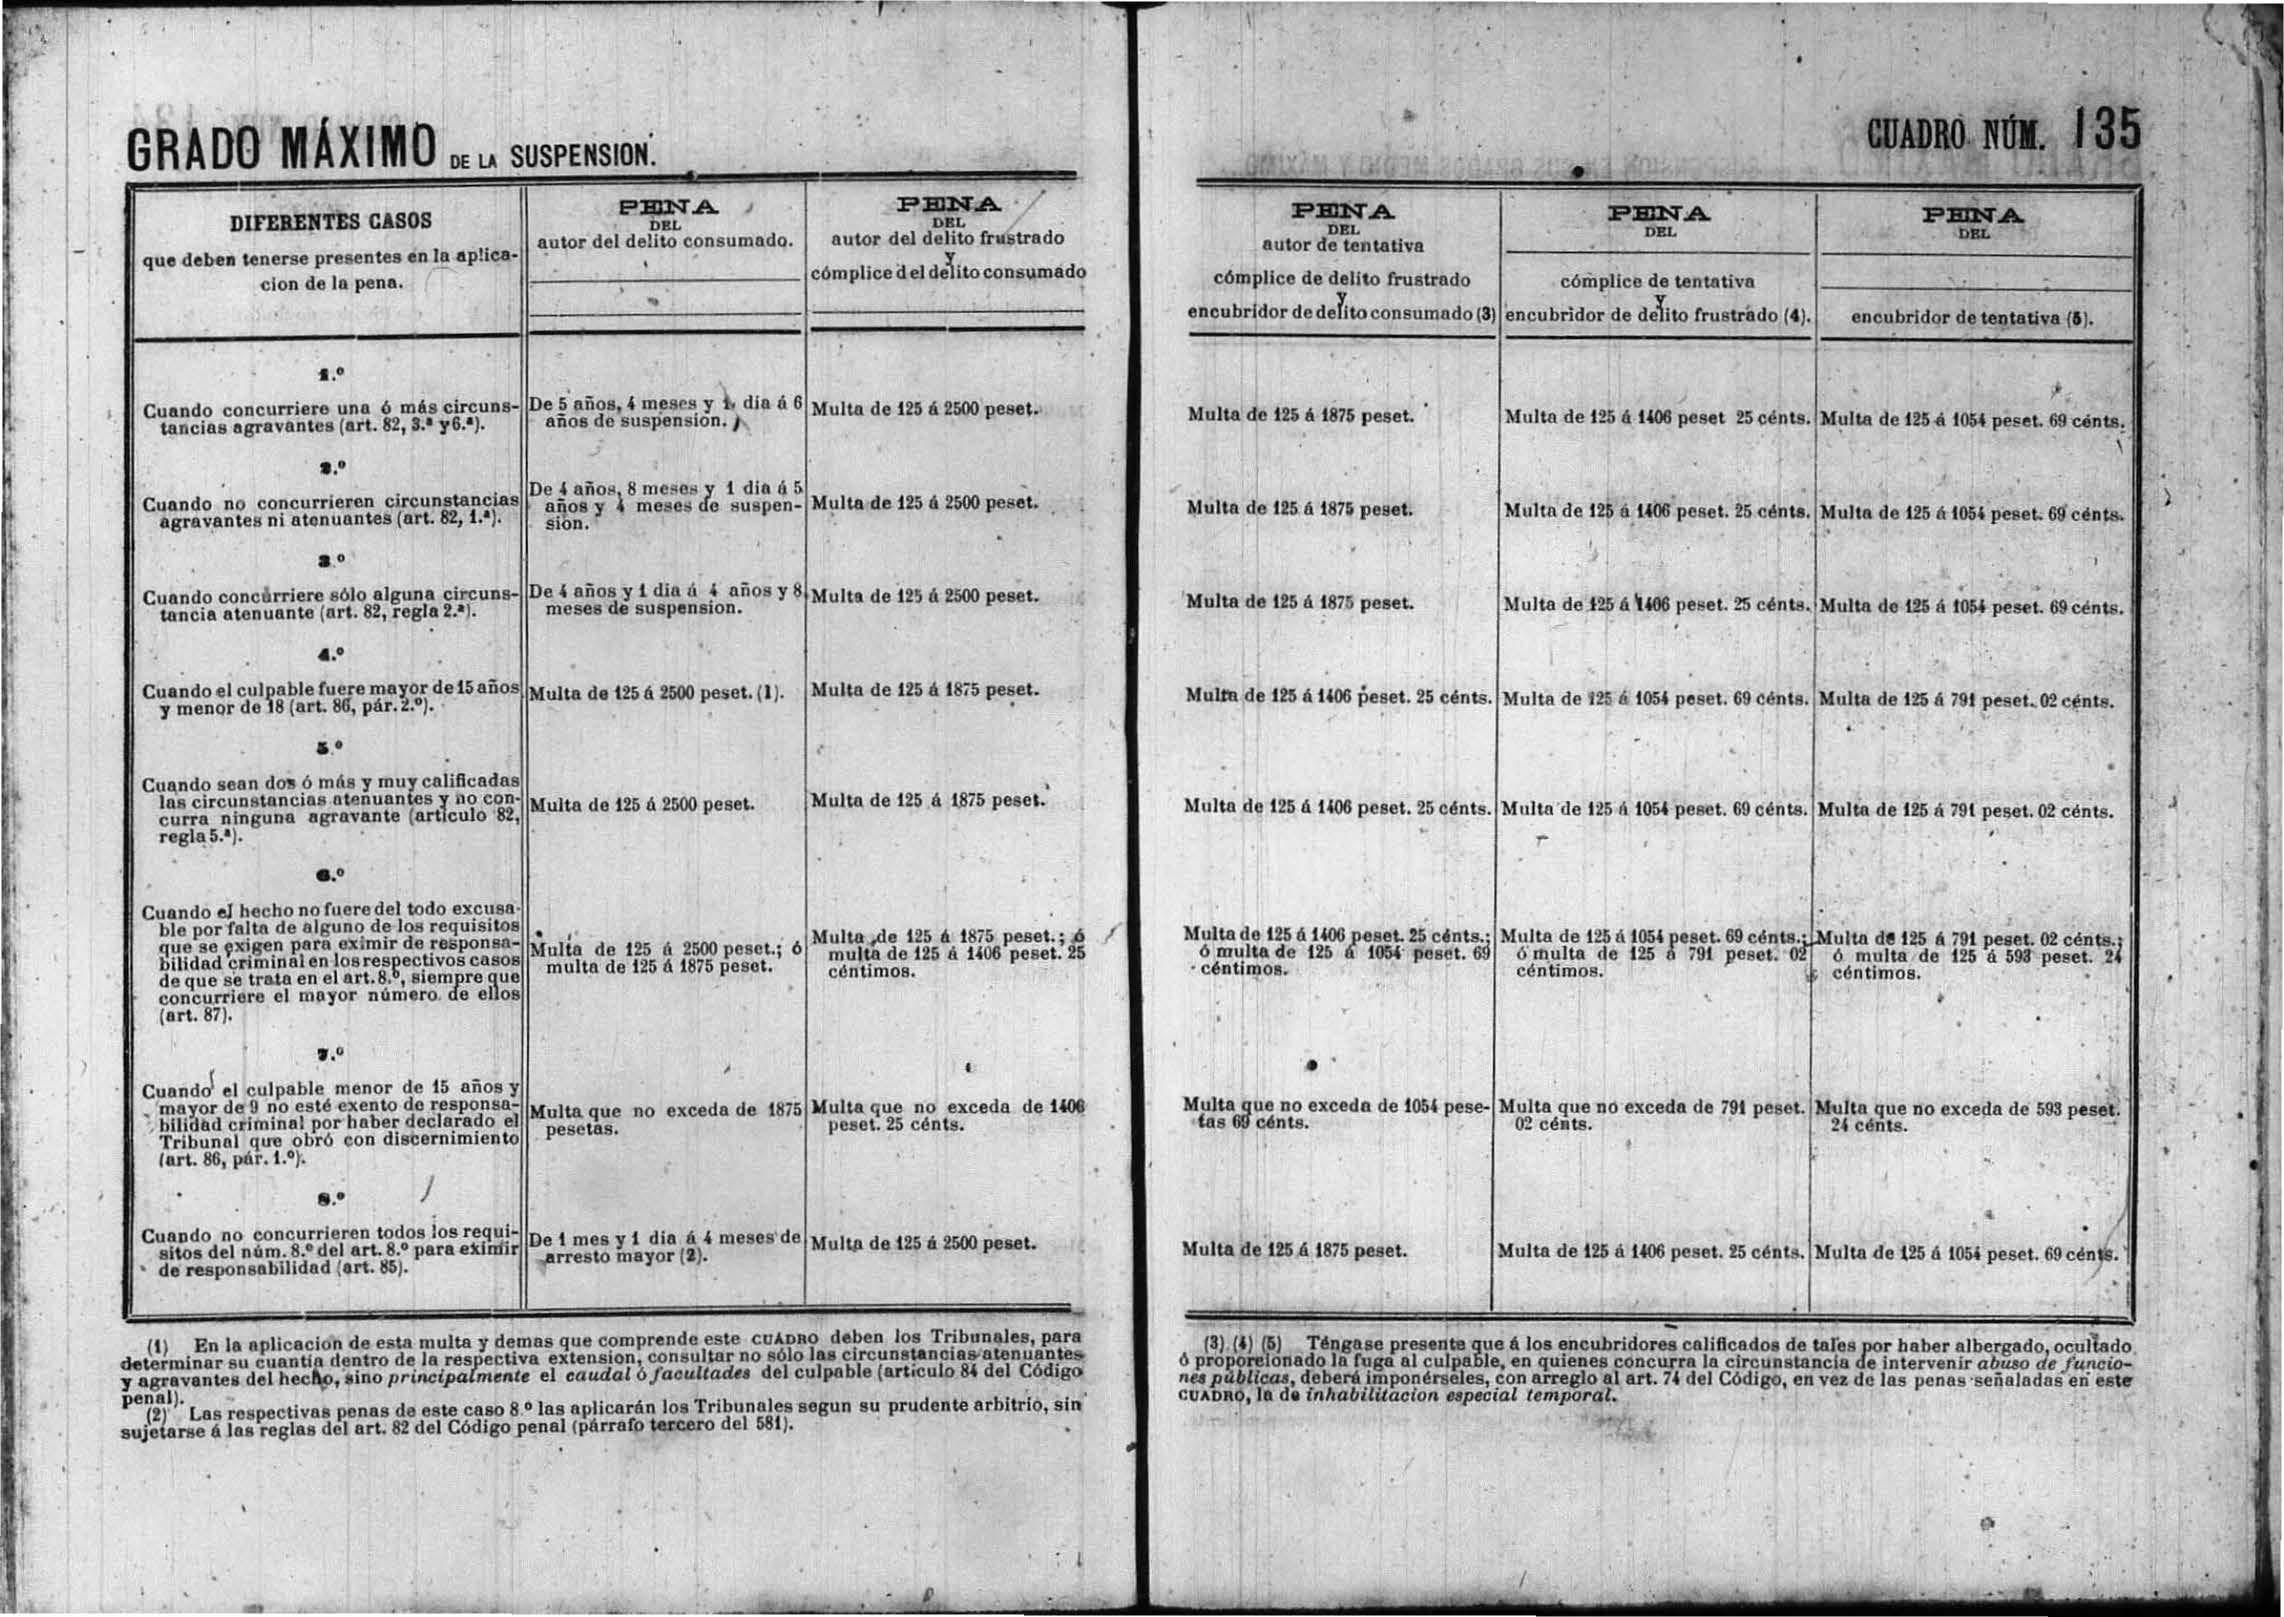 GRADO MÁXIMO DE LA SUSPENSION.
DIFERENTES CASOS
que deben tenerse presentes en la aplica-
cion de la pena.
PENA
DEL
autor del delito consumado.
PENA
DEL
autor del delito frustrado
y
cómplice del delito consumado
1.º
Cuando concurriere una ó más circuns-
tancias agravantes (art. 82, 3.ª y 6.ª).
De 5 años, 4 meses y 1 dia á 6
años de suspension.
Multa de 125 á 2500 peset.
2.º
Cuando no concurrieren circunstancias
agravantes ni atenuantes (art. 82, 1.ª).
De 4 años, 8 meses y 1 dia á 5
años y 4 meses de suspen-
sion.
Multa de 125 á 2500 peset.
3.º
Cuando concurriere sólo alguna circuns-
tancia atenuante (art. 82, regla 2.ª).
De 4 años y 1 dia á 4 años y 8
meses de suspension.
Multa de 125 á 2500 peset.
4.º
Cuando el culpable fuere mayor de 15 años
y menor de 18 (art. 86, pár. 2.º).
Multa de 125 á 2500 peset. (1).
Multa de 125 á 1875 peset.
5.º
Cuando sean dos ó más y muy calificadas
las circunstancias atenuantes y no con-
curra ninguna agravante (artículo 82,
regla 5.ª).
Multa de 125 á 2500 peset.
Multa de 125 á 1875 peset.
6.º
Cuando el hecho no fuere del todo excusa-
ble por falta de alguno de los requisitos
que se exigen para eximir de responsa-
bilidad criminal en los respectivos casos
de que se trata en el art. 8.º, siempre que
concurriere el mayor número de ellos
(art. 87).
Multa de 125 á 2500 peset.; ó
multa de 125 á 1875 peset.
Multa de 125 á 1875 peset.; ó
multa de 125 á 1406 peset. 25
céntimos.
7.º
Cuando el culpable menor de 15 años y
mayor de 9 no esté exento de responsa-
bilidad criminal por haber declarado el
Tribunal que obró con discernimiento
(art. 86, pár. 1.º).
Multa que no exceda de 1875
pesetas.
Multa que no exceda de 1406
peset. 25 cénts.
8.º
Cuando no concurrieren todos los requi-
sitos del núm. 8.º del art. 8.º para eximir
de responsabilidad (art. 85).
De 1 mes y 1 dia á 4 meses de
arresto mayor (2).
Multa de 125 á 2500 peset.
(1) En la aplicacion de esta multa y demas que comprende este CUADRO deben los Tribunales, para
determinar su cuantía dentro de la respectiva extension, consultar no sólo las circunstancias atenuantes
y agravantes del hecho, sino principalmente el caudal ó facultades del culpable (artículo 84 del Código
penal).
(2) Las respectivas penas de este caso 8.º las aplicarán los Tribunales segun su prudente arbitrio, sin
sujetarse á las reglas del art. 82 del Código penal (párrafo tercero del 581).
CUADRO NÚM. 135
PENA
DEL
autor de tentativa
cómplice de delito frustrado
y
encubridor de delito consumado (3)
PENA
DEL
cómplice de tentativa
y
encubridor de delito frustrado (4).
PENA
DEL
encubridor de tentativa (5).
Multa de 125 á 1875 peset.
Multa de 125 á 1406 peset 25 cénts.
Multa de 125 á 1054 peset. 69 cénts.
Multa de 125 á 1875 peset.
Multa de 125 á 1406 peset. 25 cénts.
Multa de 125 á 1054 peset. 69 cénts.
Multa de 125 á 1875 peset.
Multa de 125 á 1406 peset. 25 cénts.
Multa de 125 á 1054 peset. 69 cénts.
Multa de 125 á 1406 peset. 25 cénts.
Multa de 125 á 1054 peset. 69 cénts.
Multa de 125 á 791 peset. 02 cénts.
Multa de 125 á 1406 peset. 25 cénts.
Multa de 125 á 1054 peset. 69 cénts.
Multa de 125 á 791 peset. 02 cénts.
Multa de 125 á 1406 peset. 25 cénts.;
ó multa de 125 á 1054 peset. 69
céntimos.
Multa de 125 á 1054 peset. 69 cénts.;
ó multa de 125 á 791 peset. 02
céntimos.
Multa de 125 á 791 peset. 02 cénts.;
ó multa de 125 á 593 peset. 24
céntimos.
Multa que no exceda de 1054 pese-
tas 69 cénts.
Multa que no exceda de 791 peset.
02 cénts.
Multa que no exceda de 593 peset.
24 cénts.
Multa de 125 á 1875 peset.
Multa de 125 á 1406 peset. 25 cénts.
Multa de 125 á 1054 peset. 69 cénts.
(3) (4) (5) Téngase presente que á los encubridores calificados de tales por haber albergado, ocultado
ó proporcionado la fuga al culpable, en quienes concurra la circunstancia de intervenir abuso de funcio-
nes públicas, deberá imponérseles, con arreglo al art. 74 del Código, en vez de las penas señaladas en este
CUADRO, la de inhabilitacion especial temporal.